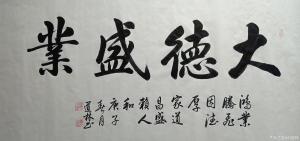 大德盛業
鴻業
騰飛
因德
厚
家道
昌盛
賴人
和
庚子
春月